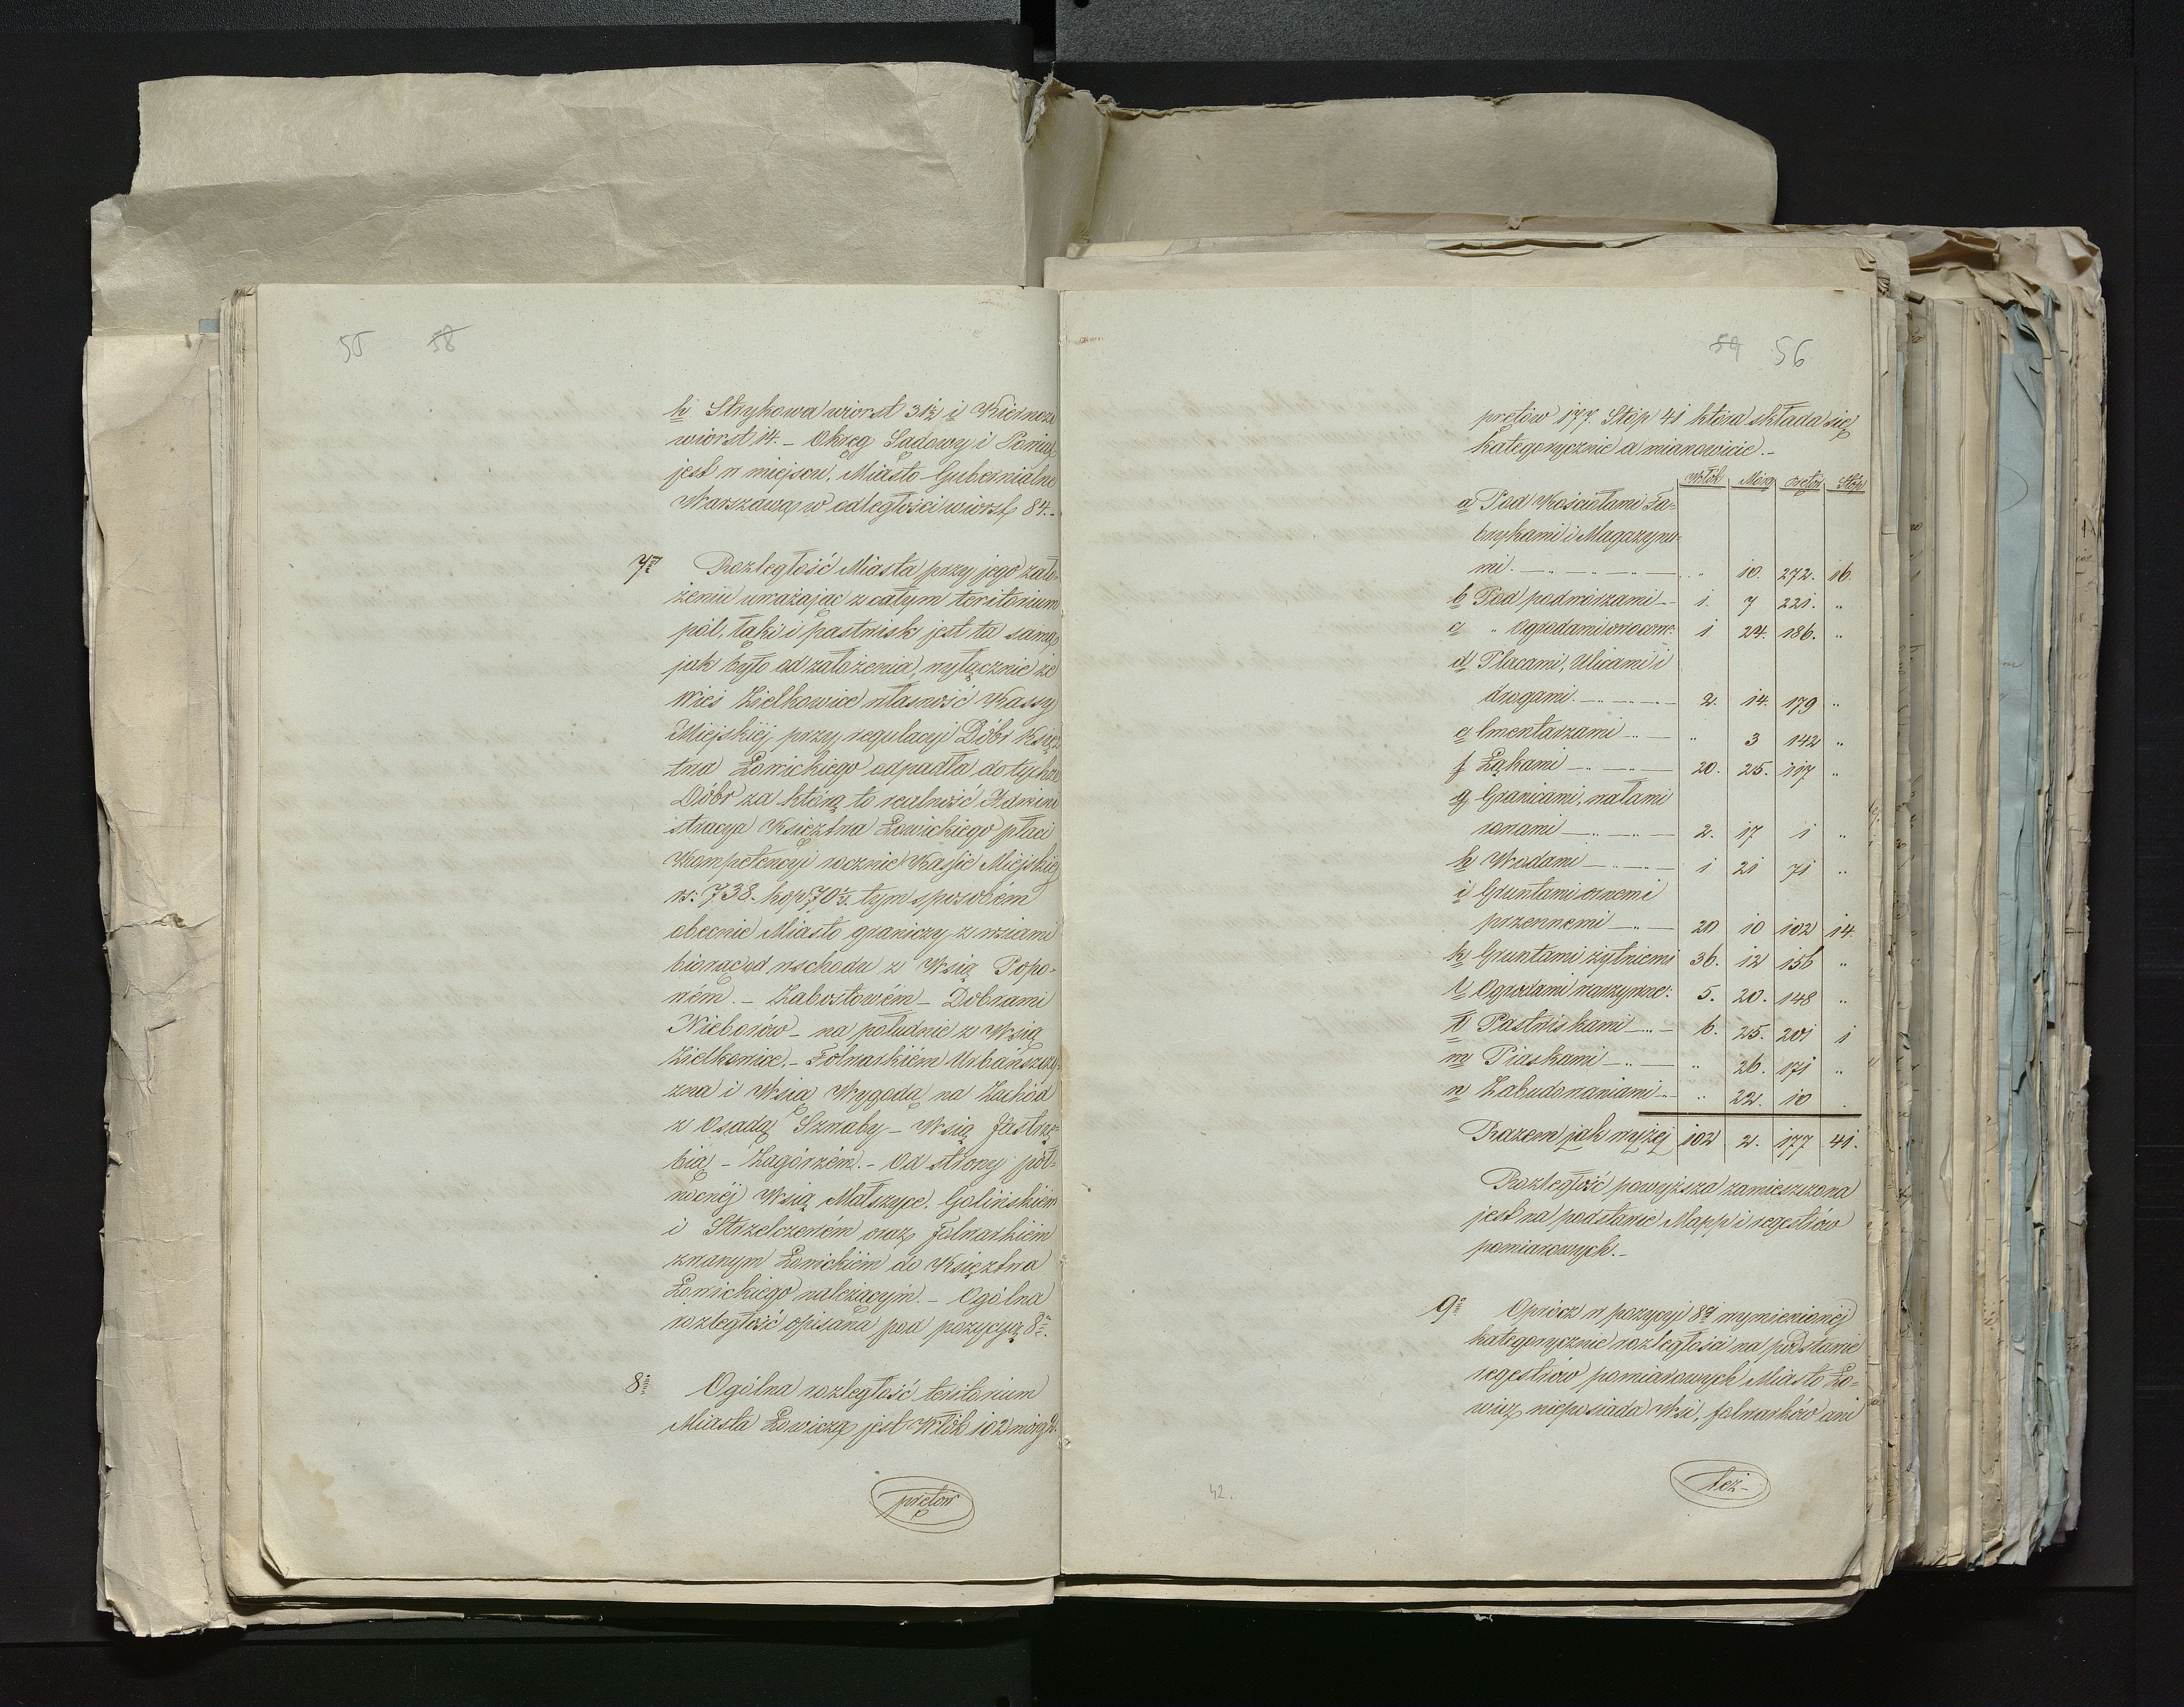 55 58
h Strykowa wiorst 31½ i Kiernozi
wiorst 14. – Okręg Sądowy i Powiat
jest w miejscu, Miasto Gubernialne
Warszawa w odległości wiorst 84. –
7o Rozległość Miasta przy jego zało-
żeniu uważając z całym teritorium
pól, łąk i pastwisk jest ta sama
jak było od założenia, wyłącznie że
Wieś Zielkowice własność Kassy
Miejskiéj przy regulacyi Dóbr Księz
twa Łowickiego odpadła do tychże
Dóbr za którą to realność Admini
stracya Księztwa Łowickiego płaci
Kompetencyi rocznie Kassie Miejskiéj
rs: 738. kop 70½. tym sposobem
obecnie Miasto graniczy z wsiami
biorąc od wschodu z Wsią Popo-
wém. – Zabostowém – Dobrami
Nieborów – na południe z Wsią
Zielkowice. – Folwarkiem Urbańszczy
zna i Wsią Wygoda na Zachód
z Osadą Sznaby – Wsią Jastrzę-
bią – Zagórzém. – Od strony pół-
nocnéj Wsią Małszyce. Golińskiém
i Strzelczewém oraz folwarkiém
zwanym Łowickiém do Księztwa
Łowickiego należącym. – Ogólna
rozległość opisana pod pozycyą 8o.
8o Ogólna rozległość teritorium
Miasta Łowicza jest Włók 102 mórg 2.
prętów
59 56
prętów 177. Stóp 41 która składa się
kategorycznie a mianowicie. –
Włók Mórg prętów Stóp
a Pod Kościołami Fa-
brykami i Magazyna-
mi. „ 10. 272. 16.
b Pod podwórzami 1. 7 221. „
c „ Ogrodami owocow: 1 24. 186. „
d Placami, Ulicami i
drogami. 2. 14. 179 „
e Cmentarzami „ 3 142 „
f Łąkami 20. 25. 117 „
g Granicami, wałami
rowami 2. 17 1 „
h Wodami 1 21 71 „
i Gruntami ornemi
przennemi 20 10 102 14.
k Gruntami żytniemi 36. 12 156 „
l Ogrodami warzywne: 5. 20. 148 „
ł Pastwiskami 6. 25. 201 1
m Piaskami „ 26. 171 „
n Zabudowaniami „ 22. 10 .
Razem jak wyżej 102 2. 177 41.
Rozległość powyższa zamieszczona
jest na podstawie Mapp i regestrów
pomiarowych. –
9o Oprócz w pozycyi 8éj wymienionéj
kategorycznie rozległości na podstawie
regestrów pomiarowych Miasto Ło-
wicz nieposiada Wsi, folwarków ani
też –
42.